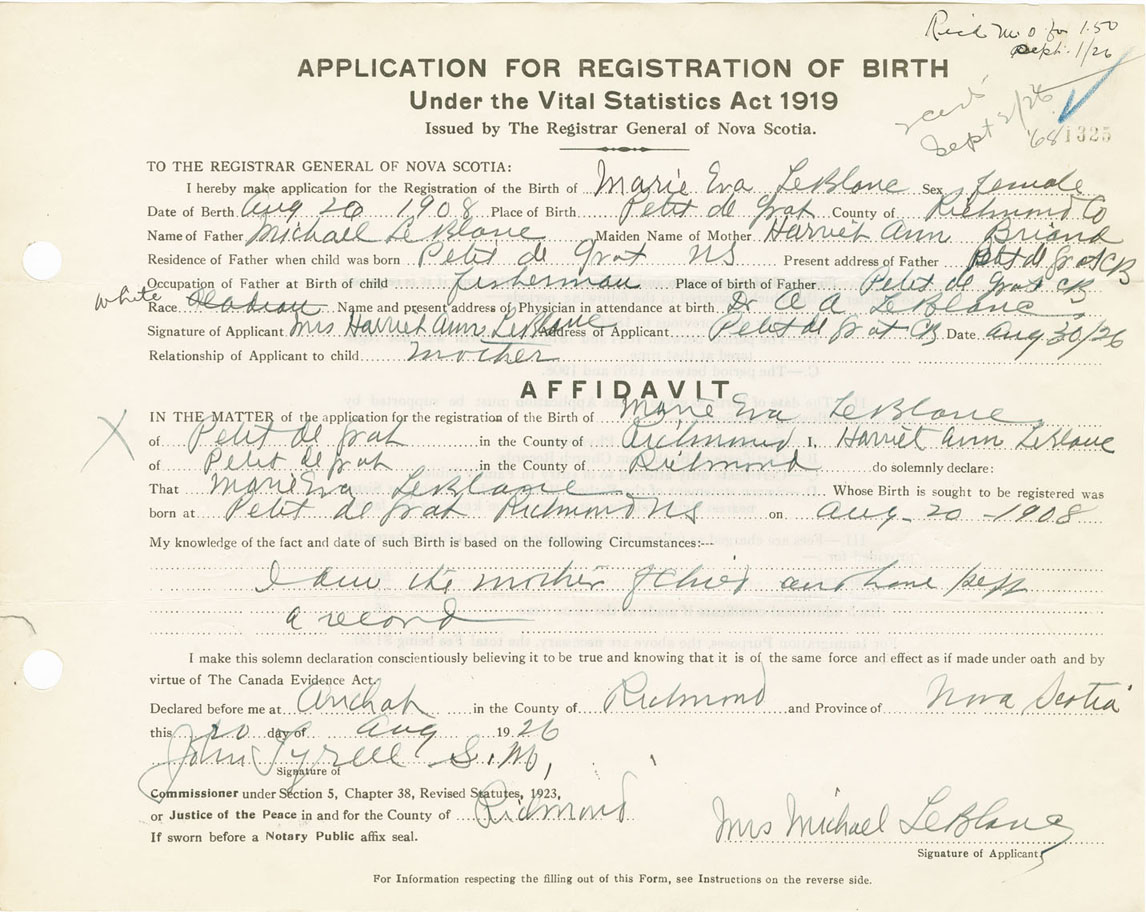 Rec'd M.O for 1.50
Sept. 1/26
APPLICATION FOR REGISTRATION OF BIRTH
Under the Vital Statistics Act 1919
Issued by The Registrar General of Nova Scotia.
Sept 2/26
'68 1325
TO THE REGISTRAR GENERAL OF NOVA SCOTIA:
I hereby make application for the Registration of the Birth of Marie Eva LeBlanc Sex female
Date of Berth Aug 20 1908 Place of Birth Petit de Grat County of Richmond Co
Name of Father Michael LeBlanc Maiden Name of Mother Harriet Ann Briand
Residence of Father when child was born Petit de Grat NS Present address of Father Petit de Grat CB
Occupation of Father at Birth of child fisherman Place of birth of Father Petit de Grat CB
white
Race Acadian Name and present address of Physician in attendance at birth Dr A A LeBlanc
Signature of Applicant Mrs Harriet Ann LeBlanc Address of Applicant Petit de Grat CB Date Aug 30/26
Relationship of Applicant to child mother
AFFIDAVIT
IN THE MATTER of the application for the registration of the Birth of Marie Eva LeBlanc
X of Petit de Grat in the County of Richmond I, Harriet Ann LeBlanc
of Petit de Grat in the County of Richmond do solemnly declare:
That Marie Eva LeBlanc Whose Birth is sought to be registered was
born at Petit de Grat Richmond NS on Aug - 20 - 1908
My knowledge of the fact and date of such Birth is based on the following Circumstances:---
I am the mother of child and have kept
a record
I make this solemn declaration conscientiously believing it to be true and knowing that it is of the same force and effect as if made under oath and by
virtue of The Canada Evidence Act.
Declared before me at Arichat in the County of Richmond and Province of Nova Scotia
this day of Aug 1926
John Tyrell S.M,
Signature of
Commissioner under Section 5, Chapter 38, Revised Statutes, 1923,
or Justice of the Peace in and for the County of Richmond
If sworn before a Notary Public affix seal.
Mrs Michael LeBlanc
Signature of Applicant
For Information respecting the filling out of this Form, see Instructions on the reverse side.